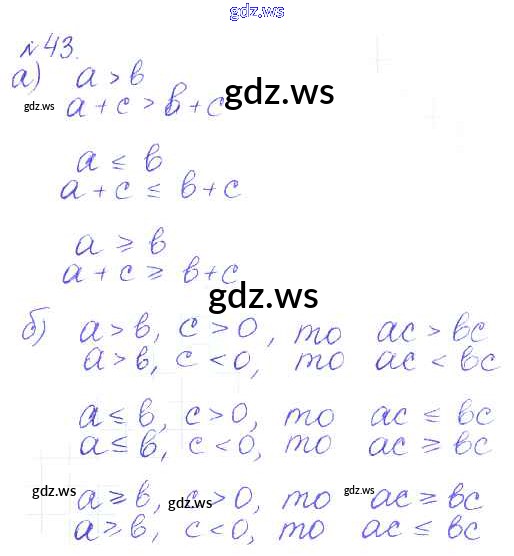 gdz.ws
№43.
а) a > b
gdz.ws a + c > b + c gdz.ws
a ≤ b
a + c ≤ b + c
a ≥ b
a + c ≥ b + c
gdz.ws
б) a > b, c > 0, то ac > bc
a > b, c < 0, то ac < bc
a ≤ b, c > 0, то ac ≤ bc
a ≤ b, c < 0, то ac ≥ bc
gdz.ws gdz.ws gdz.ws
a ≥ b, c > 0, то ac ≥ bc
a ≥ b, c < 0, то ac ≤ bc